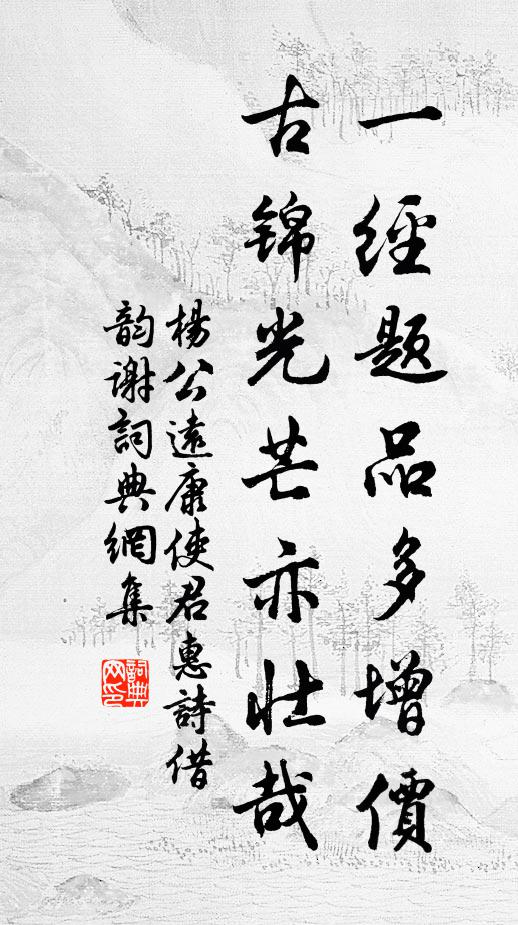 一經題品多增價
古錦光芒亦壯哉
楊公遠康使君惠詩借
韵謝詞典網集
詞典网印